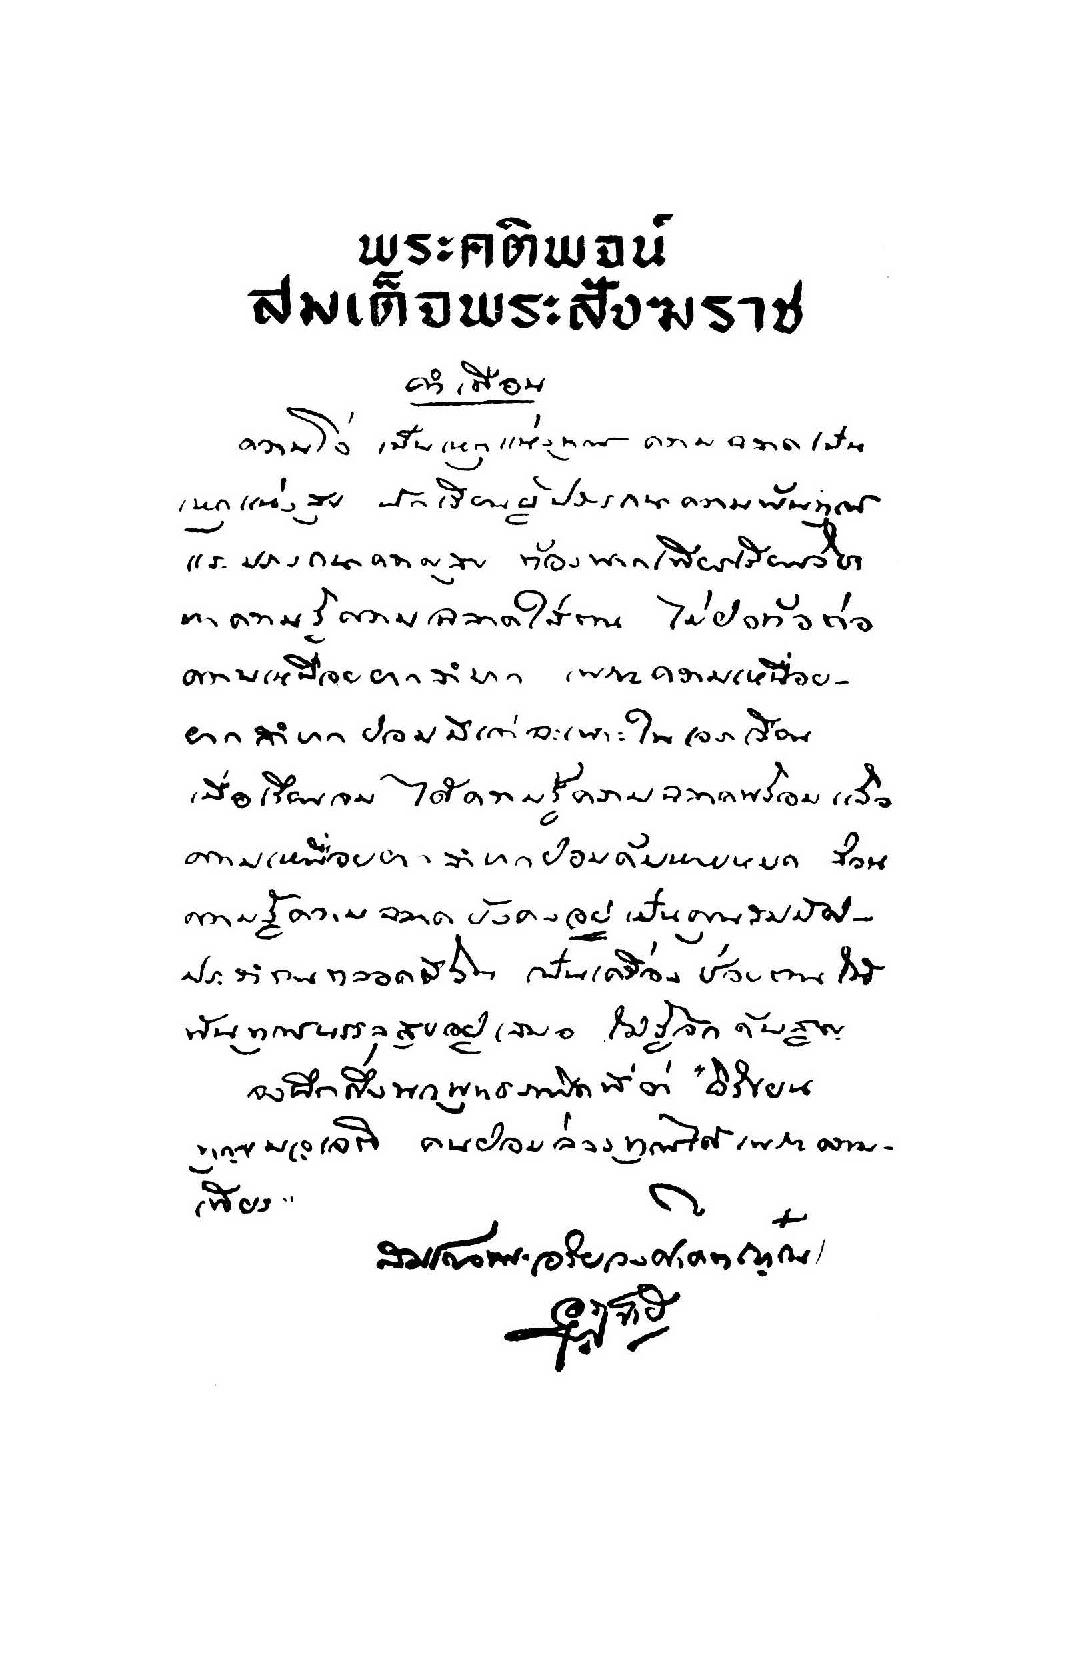 พระคติพจน์
สมเด็จพระสังฆราช
คำเตือน
ความโง่ เป็นเหตุแห่งทุกข์ ความฉลาดเป็น
เหตุแห่งสุข นักเรียนผู้ปรารถนาความพ้นทุกข์
และปรารถนาความสุข ต้องพากเพียรเรียนวิชา
หาความรู้ความฉลาดใส่ตน ไม่ย่อท้อต่อ
ความเหนื่อยยากลำบาก เพราะความเหนื่อย-
ยากลำบาก ย่อมมีแต่ฉะเพาะในเวลาเรียน
เมื่อเรียนจบ ได้ความรู้ความฉลาดพร้อมแล้ว
ความเหนื่อยยากลำบากย่อมดับหายหมด ส่วน
ความรู้ความฉลาด ยังคงอยู่ เป็นคุณสมบัติ-
ประจำตนตลอดชีวิต เป็นเครื่องช่วยตนให้
พ้นทุกข์บรรลุสุขอยู่เสมอ ไม่รู้จักดับสูญ
จงนึกถึงพระพุทธภาษิตที่ว่า "วิริเยน
ทุกฺขมจฺเจติ คนย่อมล่วงทุกข์ได้ เพราะความ-
เพียร"
สมเด็จพระอริยวงศาคตญาณ